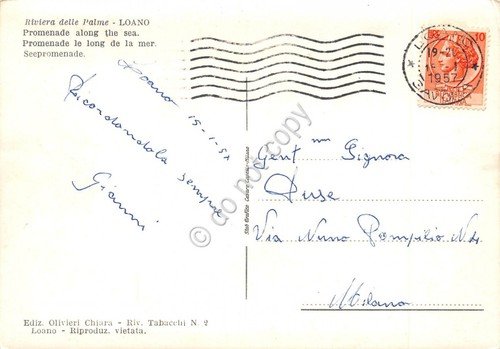 Riviera delle Palme - LOANO
Promenade along the sea.
Promenade le long de la mer.
Seepromenade.
Loano 15-1-57
Ricordandola sempre
Gianni
10
1957
SAVONA
Gent mm Signora
Duse
Via Numa Pompilio N 4
Milano
do not copy
Ediz. Olivieri Chiara - Riv. Tabacchi N. 2
Loano - Riproduz. vietata.